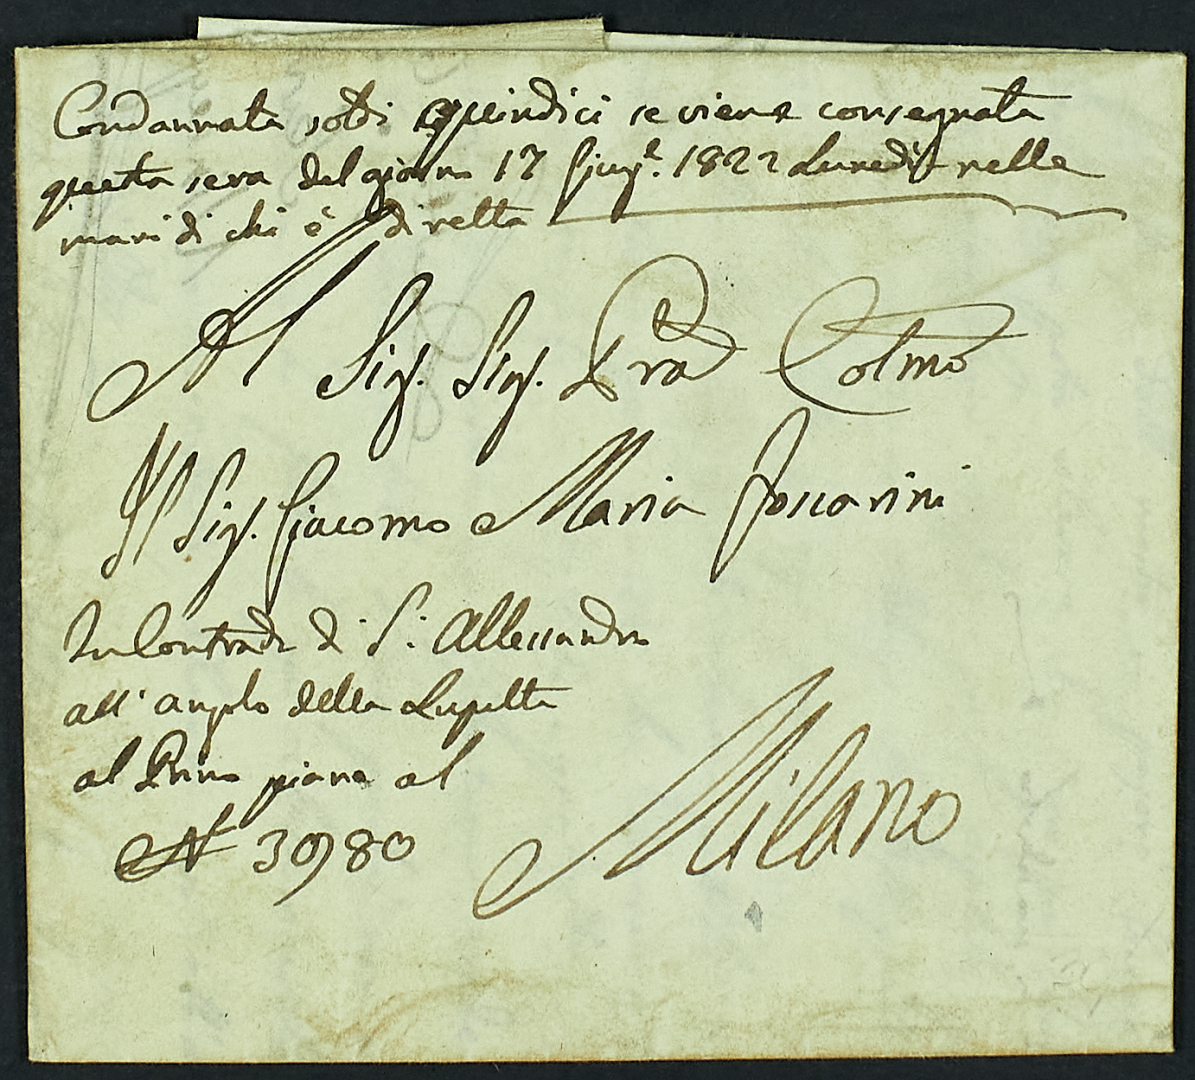 Condannata soldi quindici se viene consegnata
questa sera del giorno 17 Giug.º 1822 Lunedì nelle
mani di chi è diretta
Al Sig. Sig. Prõn Colmo
Il Sig. Giacomo Maria Foscarini
In Contrada di S. Allessandro
all' angolo della Lupetta
al Primo piano al
N 3980
Milano